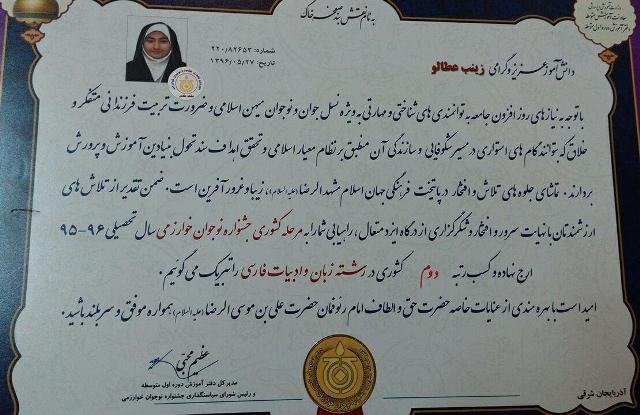 به نام نقش بند صفحه خاک
وزارت آموزش و پرورش
معاونت آموزش متوسطه
دفتر آموزش دوره اول متوسطه
شماره: ۲۲۰/۸۲۶۵۳
تاریخ: ۱۳۹۶/۰۵/۲۷
دانش آموز عزیز و گرامی زینب عطالو
با توجه به نیازهای روز افزون جامعه به توانمندی های شناختی و مهارتی به ویژه نسل جوان و نوجوان میهن اسلامی و ضرورت تربیت فرزندانی متفکر و
خلاق که بتوانند گام های استواری در مسیر شکوفایی و سازندگی آن منطبق بر نظام معیار اسلامی و تحقق اهداف سند تحول بنیادین آموزش و پرورش
بردارند. تماشای جلوه های تلاش و افتخار در پایتخت فرهنگی جهان اسلام مشهدالرضا (علیه السلام)، زیبا و غرور آفرین است. ضمن تقدیر از تلاش های
ارزشمندتان با نهایت سرور و افتخار و شکرگزاری از درگاه ایزد متعال، راهیابی شما را به مرحله کشوری جشنواره نوجوان خوارزمی سال تحصیلی ۹۶-۹۵
ارج نهاده و کسب رتبه دوم کشوری در رشته زبان و ادبیات فارسی را تبریک می گوئیم.
امید است با بهره مندی از عنایات خاصه حضرت حق و الطاف امام رئوفمان حضرت علی بن موسی الرضا (علیه السلام)، همواره موفق و سربلند باشید.
عظیم محبی
مدیر کل دفتر آموزش دوره اول متوسطه
و رئیس شورای سیاستگذاری جشنواره نوجوان خوارزمی
آذربایجان شرقی